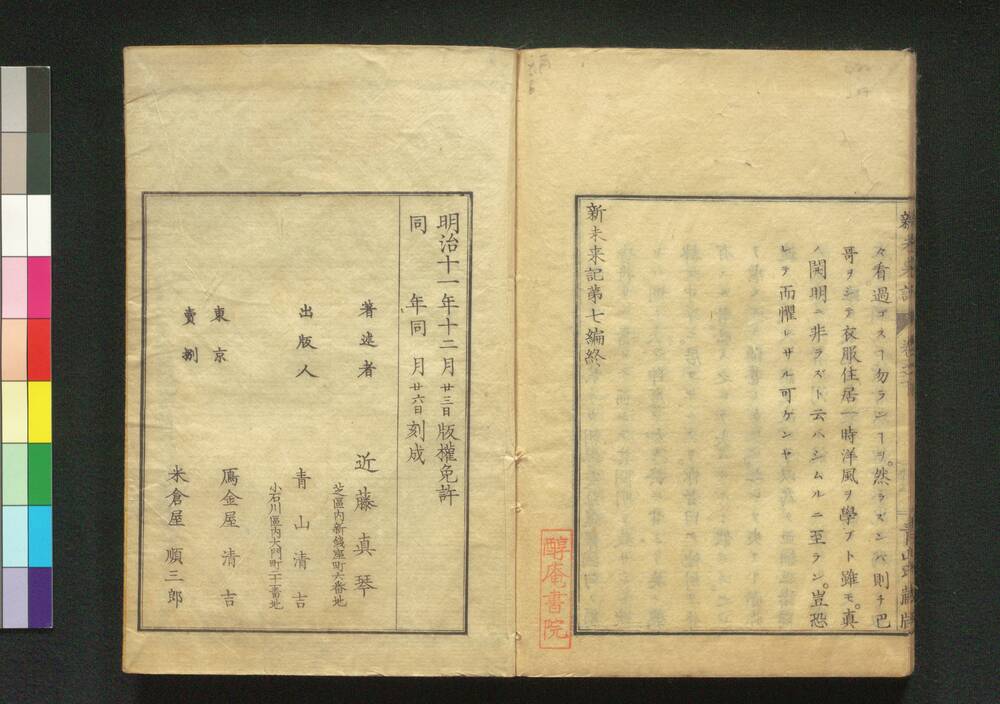 新未来記
々看過ゴスヿ勿ランヿヲ。然ラズンバ則チ巴
哥ヲシテ衣服住居一時洋風ヲ學ブト雖モ。真
ノ開明ニ非ラズト云ハシムルニ至ラン。豈恐
レテ而懼レザル可ケンヤ
新未来記第七編終
醇庵書院
明治十一年十二月廿三日版權免許
同年同月廿六日刻成
著述者
近藤真琴
芝區内新錢座町六番地
出版人
青山清吉
小石川區内大門町二十一番地
東京
賣捌
鴈金屋清吉
米倉屋順三郎